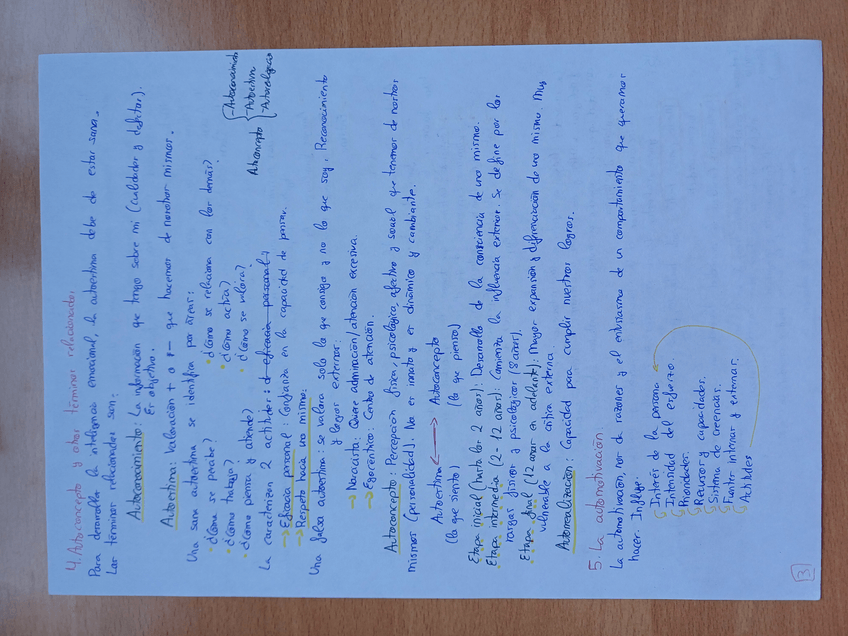 4. Autoconcepto y otros términos relacionados.
Para desarrollar la inteligencia emocional, la autoestima debe de estar sana.
Los términos relacionados son:
Autoconocimiento: La información que tengo sobre mi (cualidades y defectos).
Es objetivo.
Autoestima: Valoración + o - que hacemos de nosotros mismos.
Una sana autoestima se identifica por áreas:
• ¿Cómo se percibe?
• ¿Cómo trabaja?
• ¿Cómo piensa y atiende?
• ¿Cómo se relaciona con los demás?
• ¿Cómo actúa?
• ¿Cómo se valora?
La caracterizan 2 actitudes: eficacia personal:
→ Eficacia personal: Confianza en la capacidad de pensar.
→ Respeto hacia uno mismo:
Autoconcepto
- Autoconocimiento
- Autoestima
Una falsa autoestima se valora solo lo que consigo y no lo que soy. Reconocimiento
y logros externos:
→ Narcisista: Quiere admiración/atención excesiva.
→ Egocéntrico: Centro de atención.
Autoconcepto: Percepción física, psicológica, afectiva y social que tenemos de nosotros
mismos (personalidad). No es innato y es dinámico y cambiante.
Autoestima ↔ Autoconcepto
(lo que siento) (lo que pienso)
Etapa inicial (hasta los 2 años): Desarrollo de la consciencia de uno mismo.
Etapa intermedia (2-12 años): Comienza la influencia exterior. Se define por los
rasgos físicos y psicológicos (8 años).
Etapa final (12 años en adelante): Mayor expansión y diferenciación de uno mismo. Muy
vulnerable a la crítica externa
Autorrealización: Capacidad para cumplir nuestros logros.
5. La automotivación.
La automotivación nos da razones y el entusiasmo de un comportamiento que queramos
hacer. Influye:
Interés de la persona
Intensidad del esfuerzo.
Prioridades.
Recursos y capacidades.
Sistema de creencias.
Fuentes internas y externas.
Actitudes
3